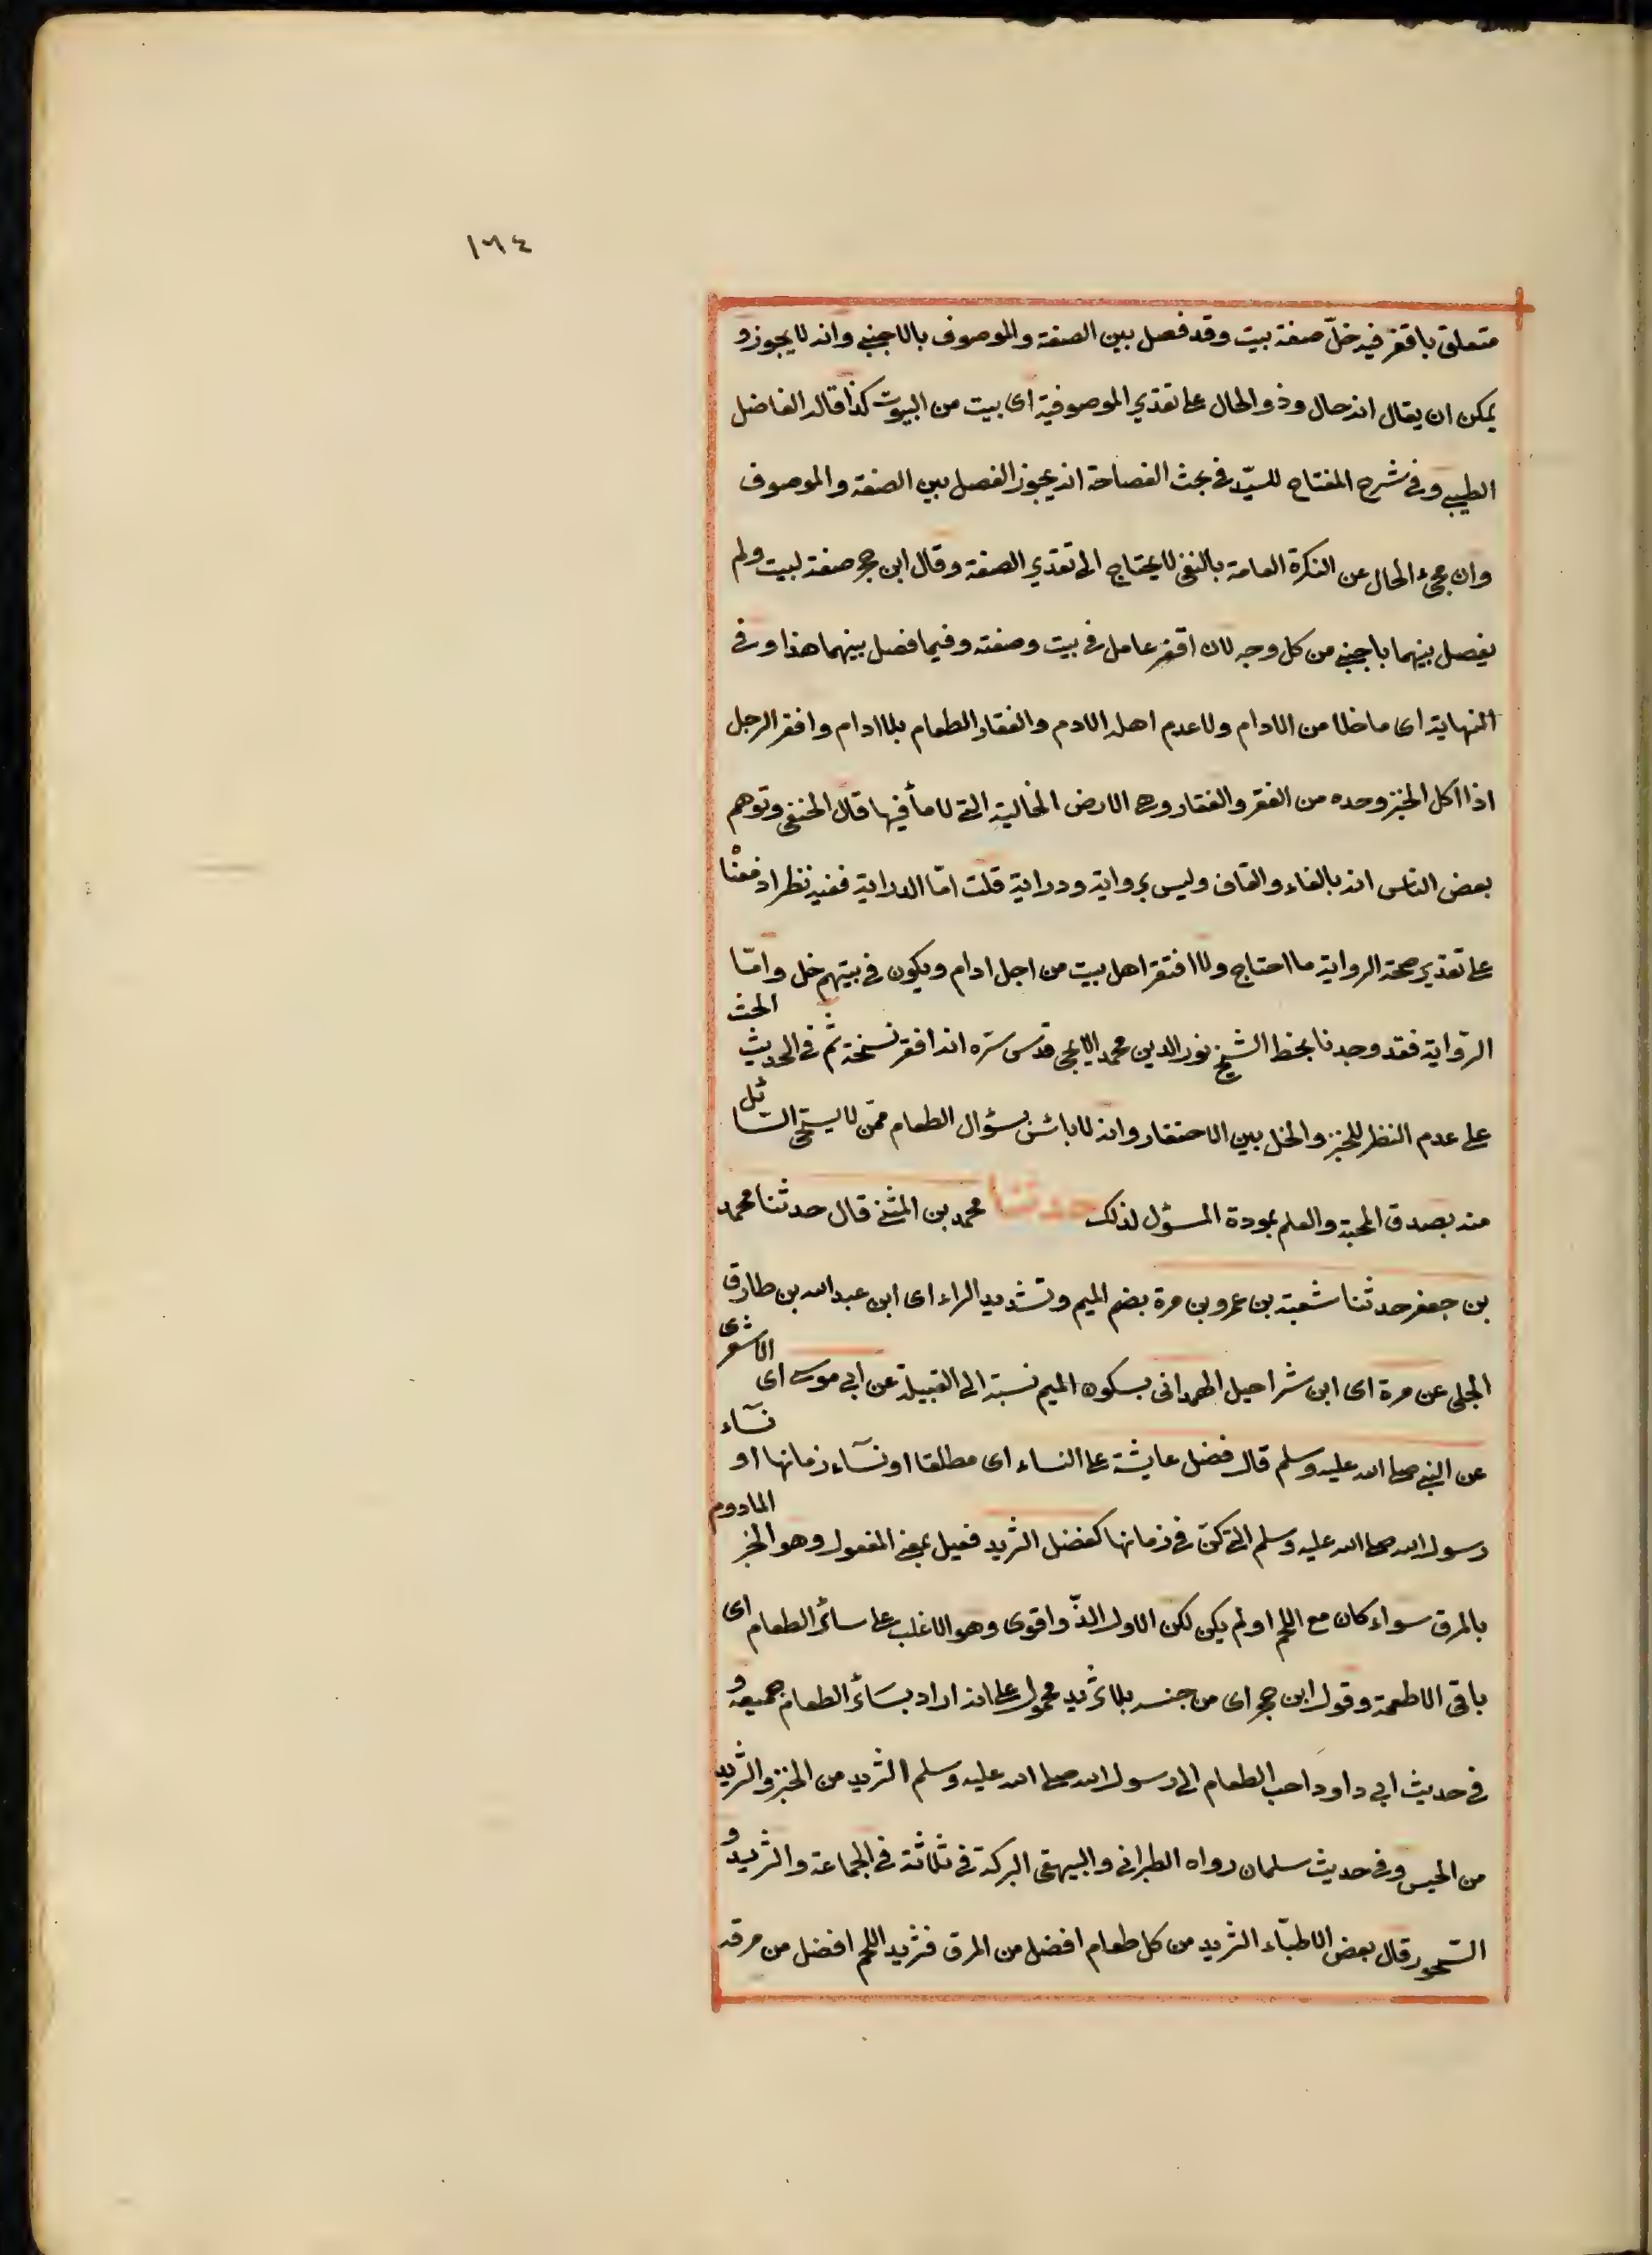 ١٦٤
متعلق باقفر فيه خلّ صفة بيت وقد فصل بين الصفة والموصوف بالاجنبي وانه لا يجوز و
يمكن ان يقال انه حال وذو الحال على تقدير الموصوفية اى بيت من البيوت كذا قاله الفاضل
الطيبي وفي شرح المفتاح للسيّد في بحث الفصاحة انه يجوز الفصل بين الصفة والموصوف
وان مجيء الحال عن النكرة العامة بالنفي لا يحتاج الى تقدير الصفة وقال ابن حجر صفة لبيت ولم
يفصل بينهما باجنبي من كل وجه لان اقفر عامل في بيت وصفته وفيما فصل بينهما هذا وفى
النهاية اى ما خلا من الادام ولا عدم اهله الادم والفقار الطعام بلا ادام وافقر الرجل
اذا اكل الخبز وحده من الفقر والفقار وهى الارض الخالية التى لا مأ فيها قال الحنفي وتوهم
بعض الناس انه بالفاء والقاف وليس برواية ودراية قلت امّا الدراية ففيه نظر اذ معنا
على تقدير صحة الرواية ما احتاج ولا افتقر اهل بيت من اجل ادام ويكون في بيتهم خل وامّا
الرّواية فقد وجدنا بخط الشيخ نور الدين محمد الايجى قدس سرّه انه افقر نسخة ثم في الحديث الحث
على عدم النظر للخبز والخل بعين الاحتقار وانه لا بائس بسؤال الطعام ممّن لا يستحى السّائل
منه بصدق المحبة والعلم بمودة المسؤل لذلك حدثنا محمد بن المثنى قال حدثنا محمد
بن جعفر حدثنا شعبة بن عمرو بن مرة بضم الميم وتشديد الراء اى ابن عبد الله بن طارق
الجملى عن مرة اى ابن شراحيل الهمدانى بسكون الميم نسبة الى القبيلة عن ابى موسى اى الاشعرى
عن النبي صلى الله عليه وسلم قال فضل عايشة على النساء اى مطلقا او نسآء زمانها او نسآء
رسول الله صلى الله عليه وسلم التى كنّ في زمانها كفضل الثريد فعيل بمعنى المفعول وهو الخبز المادوم
بالمرق سواء كان مع اللحم او لم يكن لكن الاول الذّ واقوى وهو الاغلب على سائر الطعام اى
باقى الاطعمة وقول ابن حجر اى من جنسه بلا ثريد محمول على انه اراد بسَائر الطعام جميعه و
في حديث ابى داود احب الطعام الى رسول الله صلى الله عليه وسلم الثريد من الخبز والثريد
من الحيس وفى حديث سلمان رواه الطبرانى والبيهقى البركة في ثلاثة في الجماعة والثريد و
السّحور قال بعض الاطبّاء الثريد من كل طعام افضل من المرق فثريد اللحم افضل من مرقه